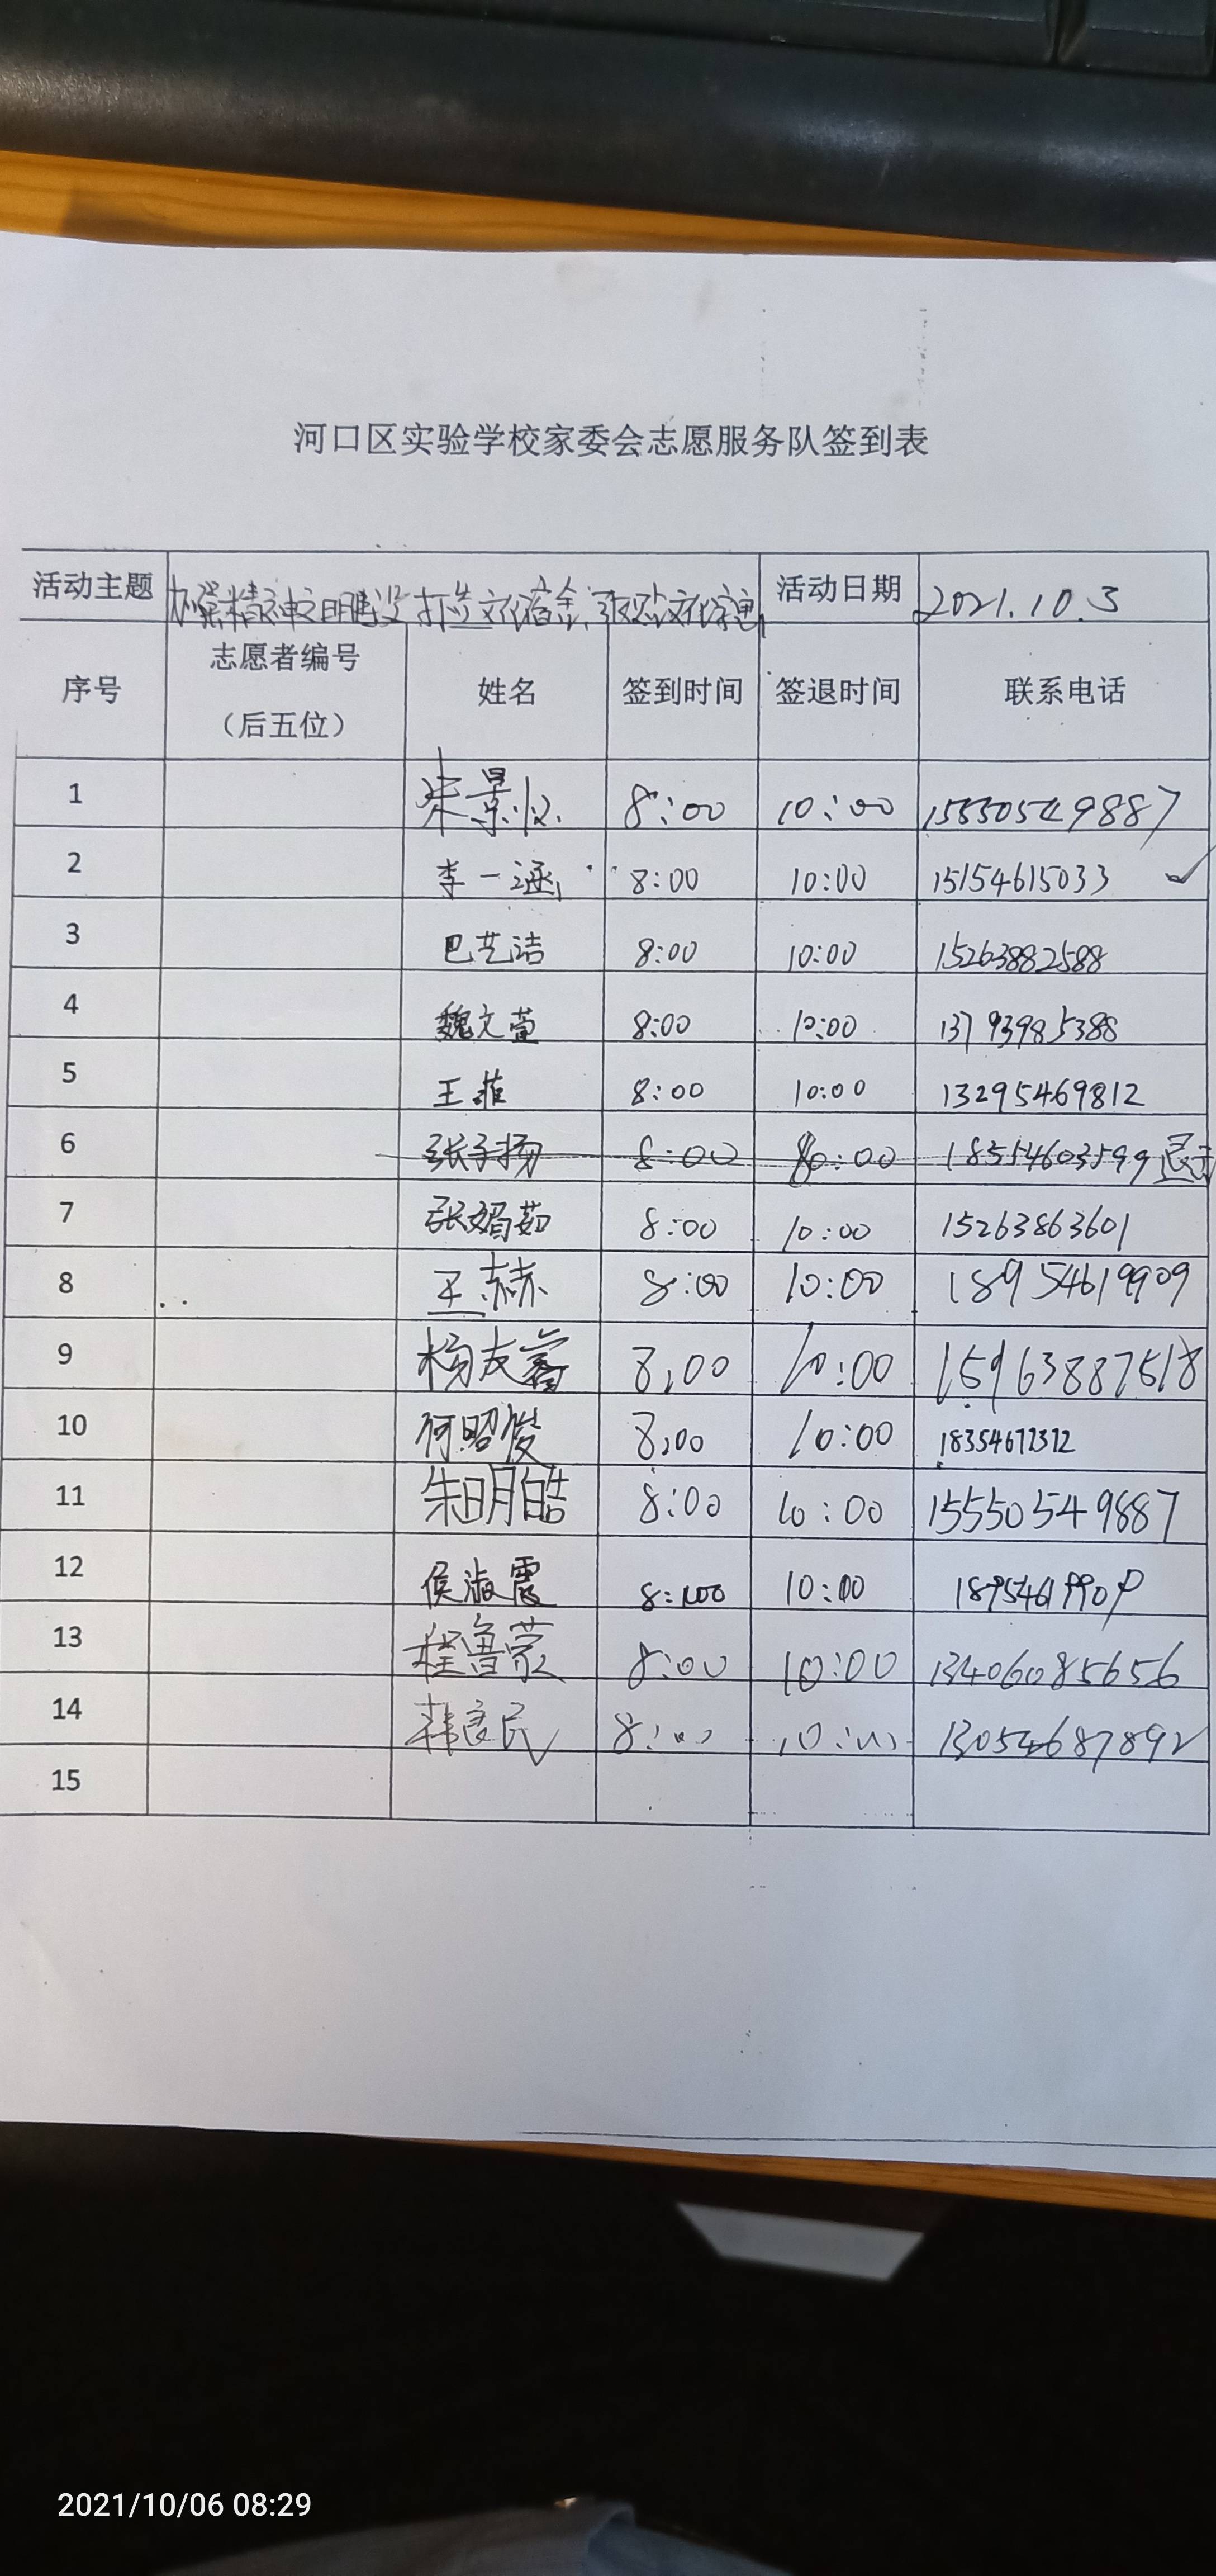 河口区实验学校家委会志愿服务队签到表
活动主题 加强精神文明建设 打造文化宿舍 活动日期 2021.10.3
序号 志愿者编号（后五位） 姓名 签到时间 签退时间 联系电话
1 8:00 10:00 15550549887
2 李一涵 8:00 10:00 15154615033 ✓
3 巴艺洁 8:00 10:00 15263882588
4 魏文萱 8:00 10:00 13793985388
5 王菲 8:00 10:00 13295469812
6 张子扬 8:00 10:00 18554603599
7 张娟茹 8:00 10:00 15263863601
8 王赫 8:00 10:00 18954619909
9 杨友睿 8:00 10:00 15963887518
10 何昭俊 8:00 10:00
11 朱明皓 8:00 10:00 15550549887
12 侯淑震 8:00 10:00 18954619909
13 程鲁蒙 8:00 10:00 13406085656
14 韩良民 8:00 10:00 13054687892
15
2021/10/06 08:29